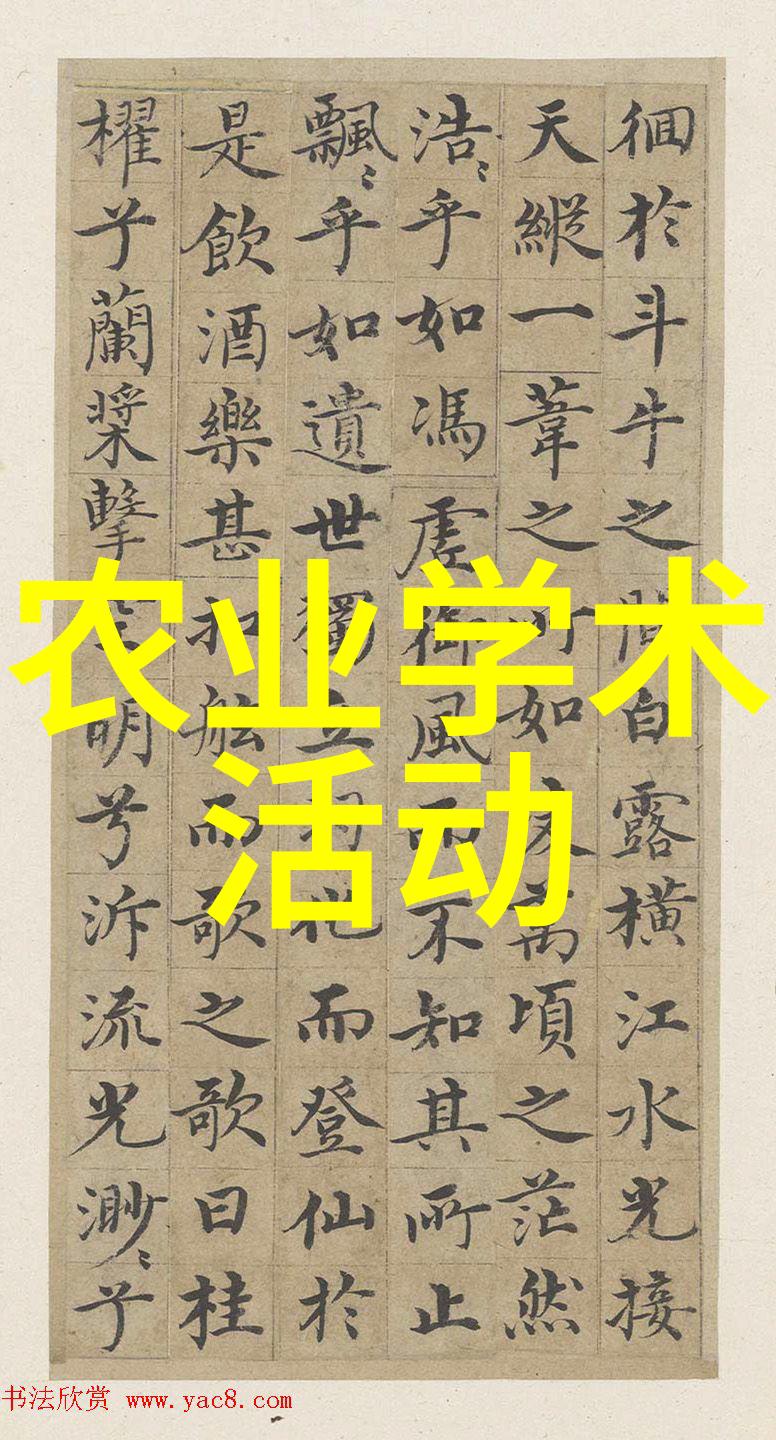 徊於斗牛之間白露橫江水光接
天縱一葦之所如萬頃之茫然
浩〻乎如馮虛御風而不知其所止
飄〻乎如遺世獨立羽化而登仙於
是飲酒樂甚扣舷而歌之歌曰桂
櫂兮蘭槳擊空明兮泝流光渺〻兮
农业学术
活动
书法欣赏 www.yac8.com